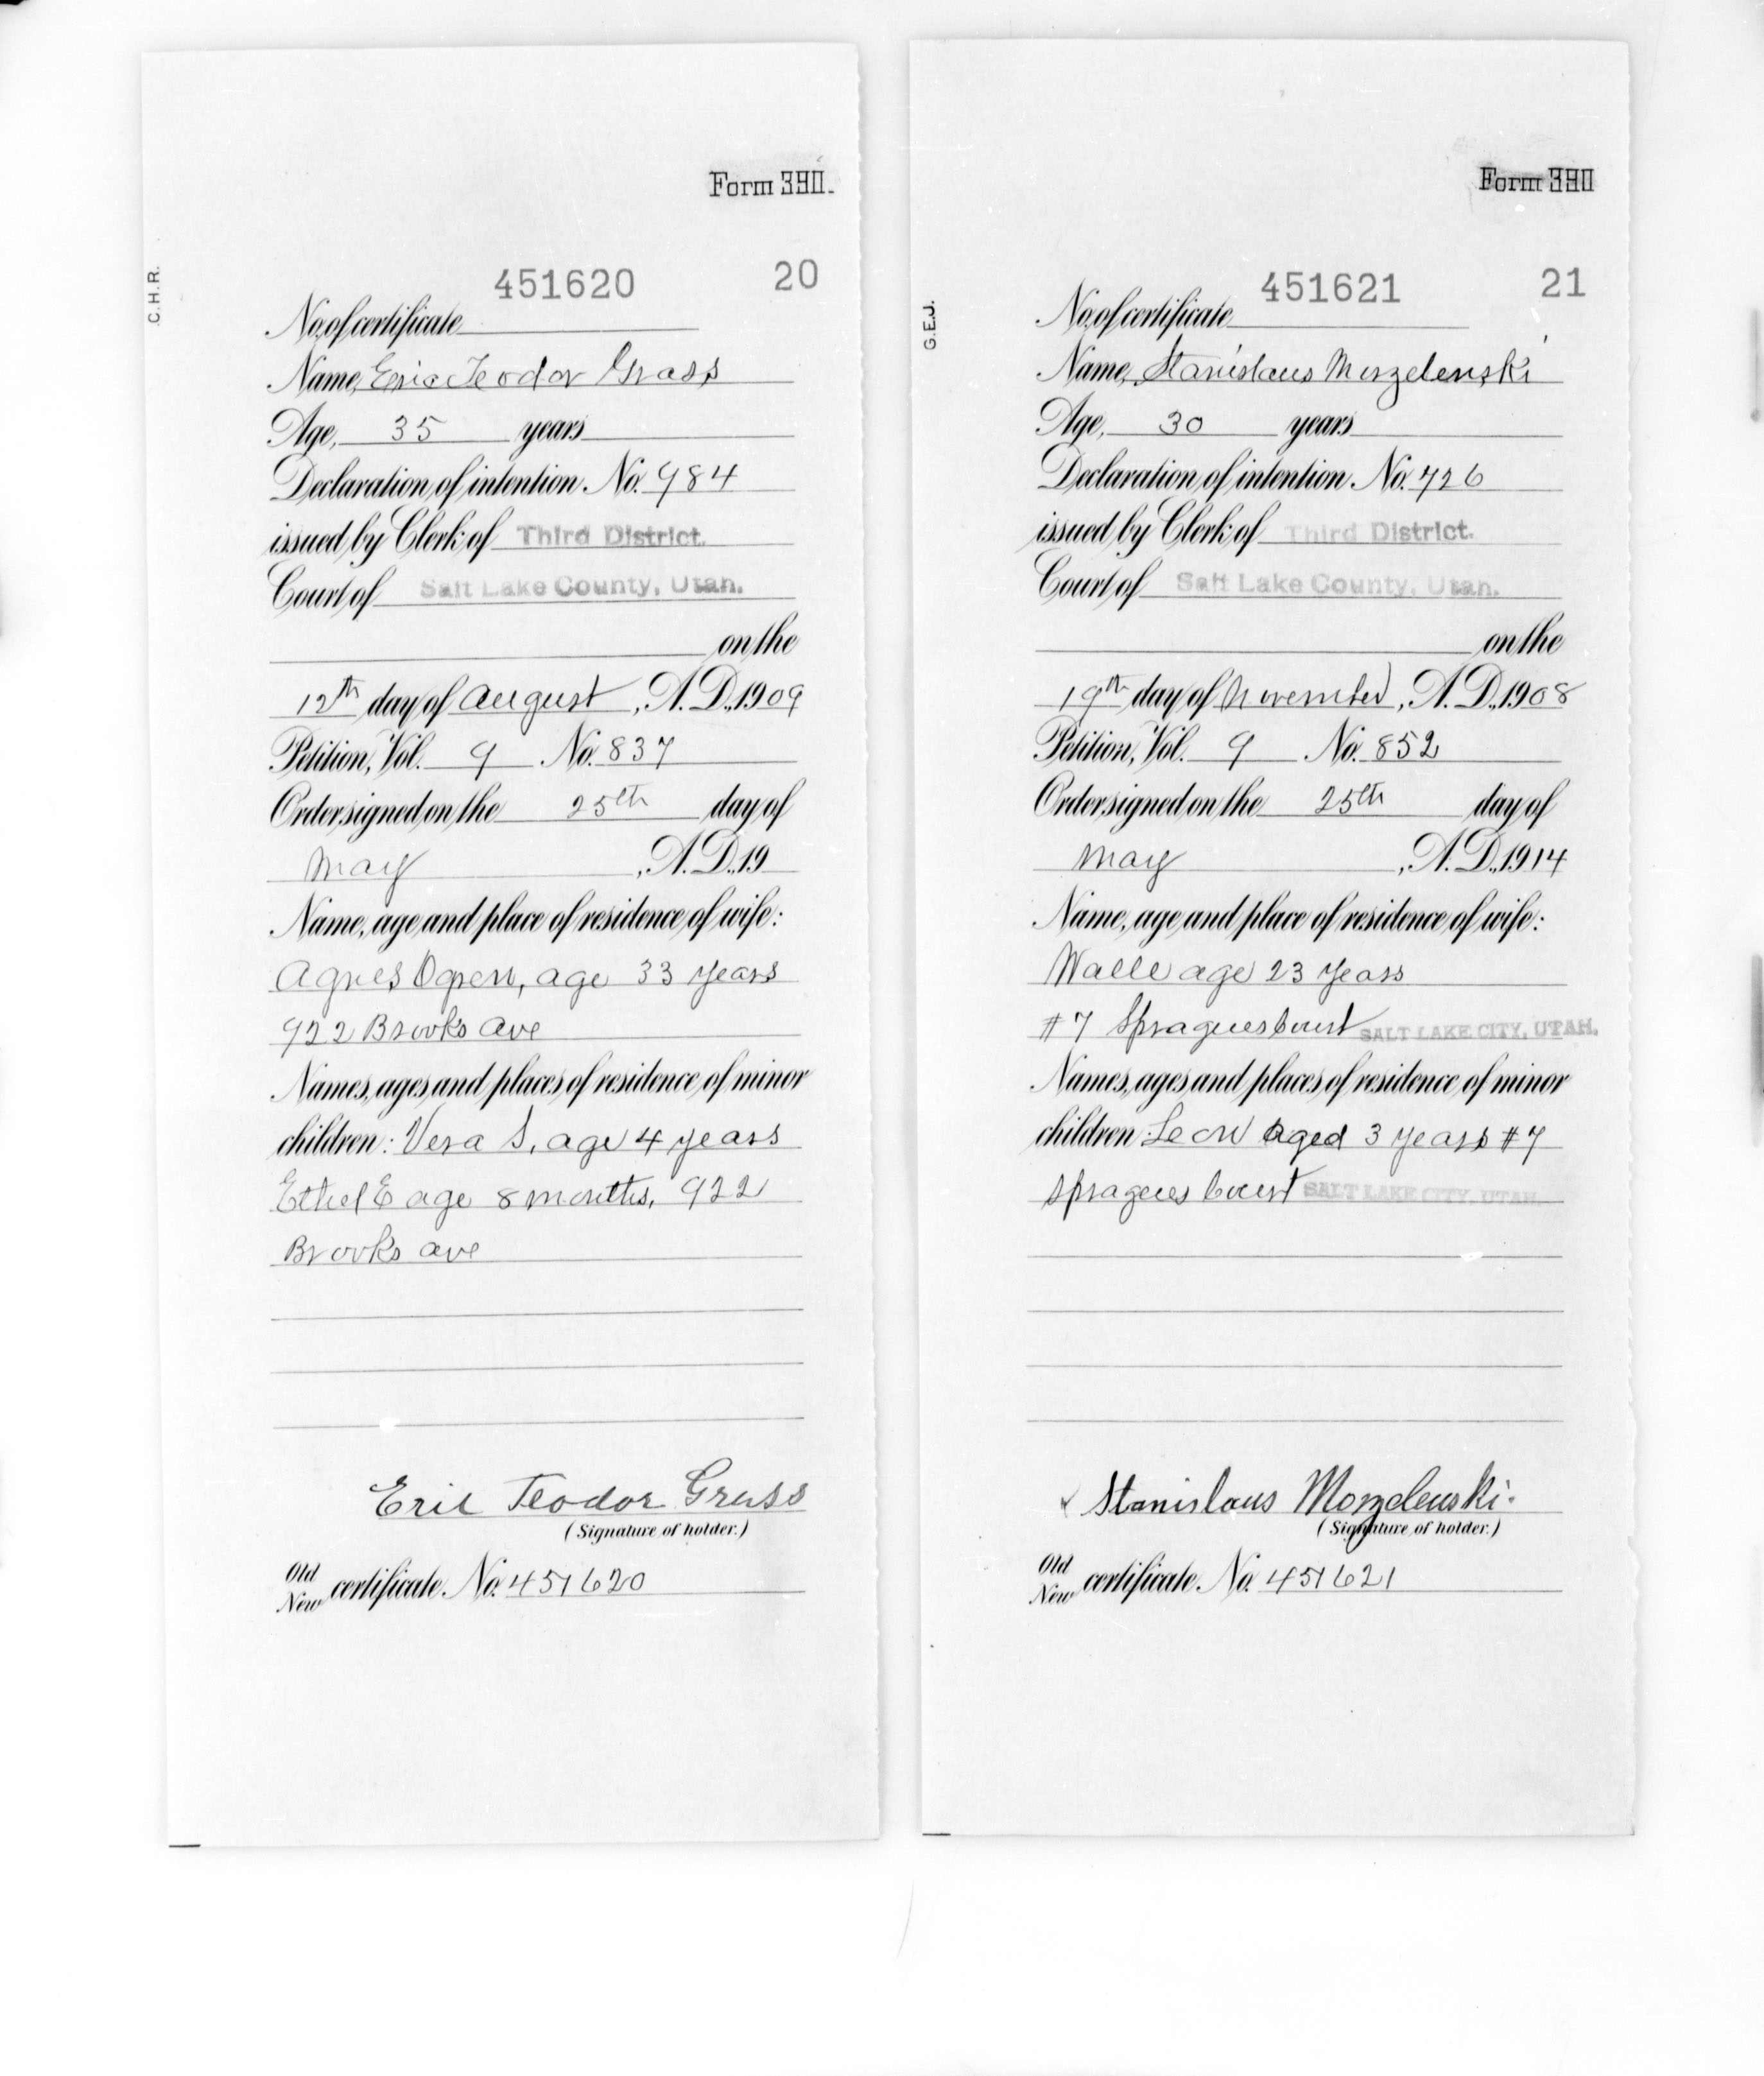 Form 390.
C.H.R.
451620 20
No. of certificate
Name, Eric Teodor Grass
Age, 35 years
Declaration of intention. No. 984
issued by Clerk of Third District.
Court of Salt Lake County, Utah.
on the
12th day of August, A.D., 1909
Petition, Vol. 9 No. 837
Order signed on the 25th day of
May, A.D. 19
Name, age and place of residence of wife:
Agnes Ogren, age 33 years
922 Brooks Ave
Names, ages and places of residence of minor
children: Vera S, age 4 years
Ethel E age 8 months, 922
Brooks Ave
Eric Teodor Grass
(Signature of holder.)
Old
New certificate. No. 451620
Form 390
G.E.J.
451621 21
No. of certificate
Name, Stanislaus
Age, 30 years
Declaration of intention. No. 726
issued by Clerk of Third District.
Court of Salt Lake County, Utah.
on the
19th day of November, A.D., 1908
Petition, Vol. 9 No. 852
Order signed on the 25th day of
May, A.D. 1914
Name, age and place of residence of wife:
age 23 years
#7 Spragues Court SALT LAKE CITY, UTAH.
Names, ages and places of residence of minor
children: Leon aged 3 years #7
Spragues Court SALT LAKE CITY, UTAH.
Stanislaus
(Signature of holder.)
Old
New certificate. No. 451621